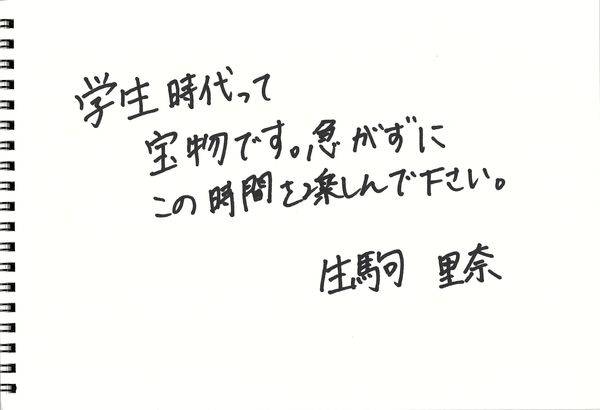 学生時代って
宝物です。急がずに
この時間を楽しんで下さい。
生駒 里奈